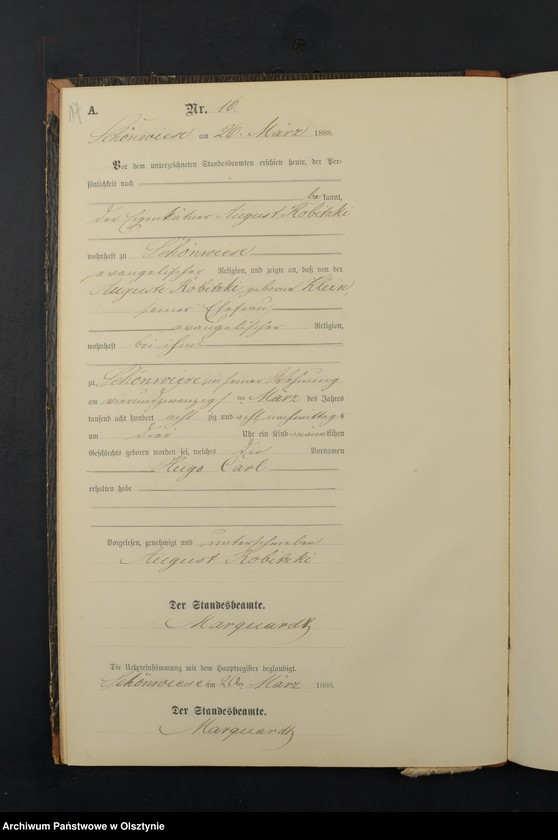 17
A.
Nr. 10.
Schönwiese am 26. März 1888.
Vor dem unterzeichneten Standesbeamten erschien heute, der Per-
sönlichkeit nach
be kannt,
der Eigenkätner August Robitzki
wohnhaft zu Schönwiese
evangelischer Religion, und zeigte an, daß von der
Auguste Robitzki, geborne Klein,
seiner Ehefrau
evangelischer Religion,
wohnhaft bei ihm
zu Schönwiese in seiner Wohnung
am vierundzwanzigsten März des Jahres
tausend acht hundert acht zig und acht nachmittags
um drei Uhr ein Kind männlichen
Geschlechts geboren worden sei, welches die Vornamen
Hugo Carl
erhalten habe
Vorgelesen, genehmigt und unterschrieben
August Robitzki
Der Standesbeamte.
Marquardt
Die Uebereinstimmung mit dem Hauptregister beglaubigt.
Schönwiese am 26. März 1888.
Der Standesbeamte.
Marquardt
Archiwum Państwowe w Olsztynie